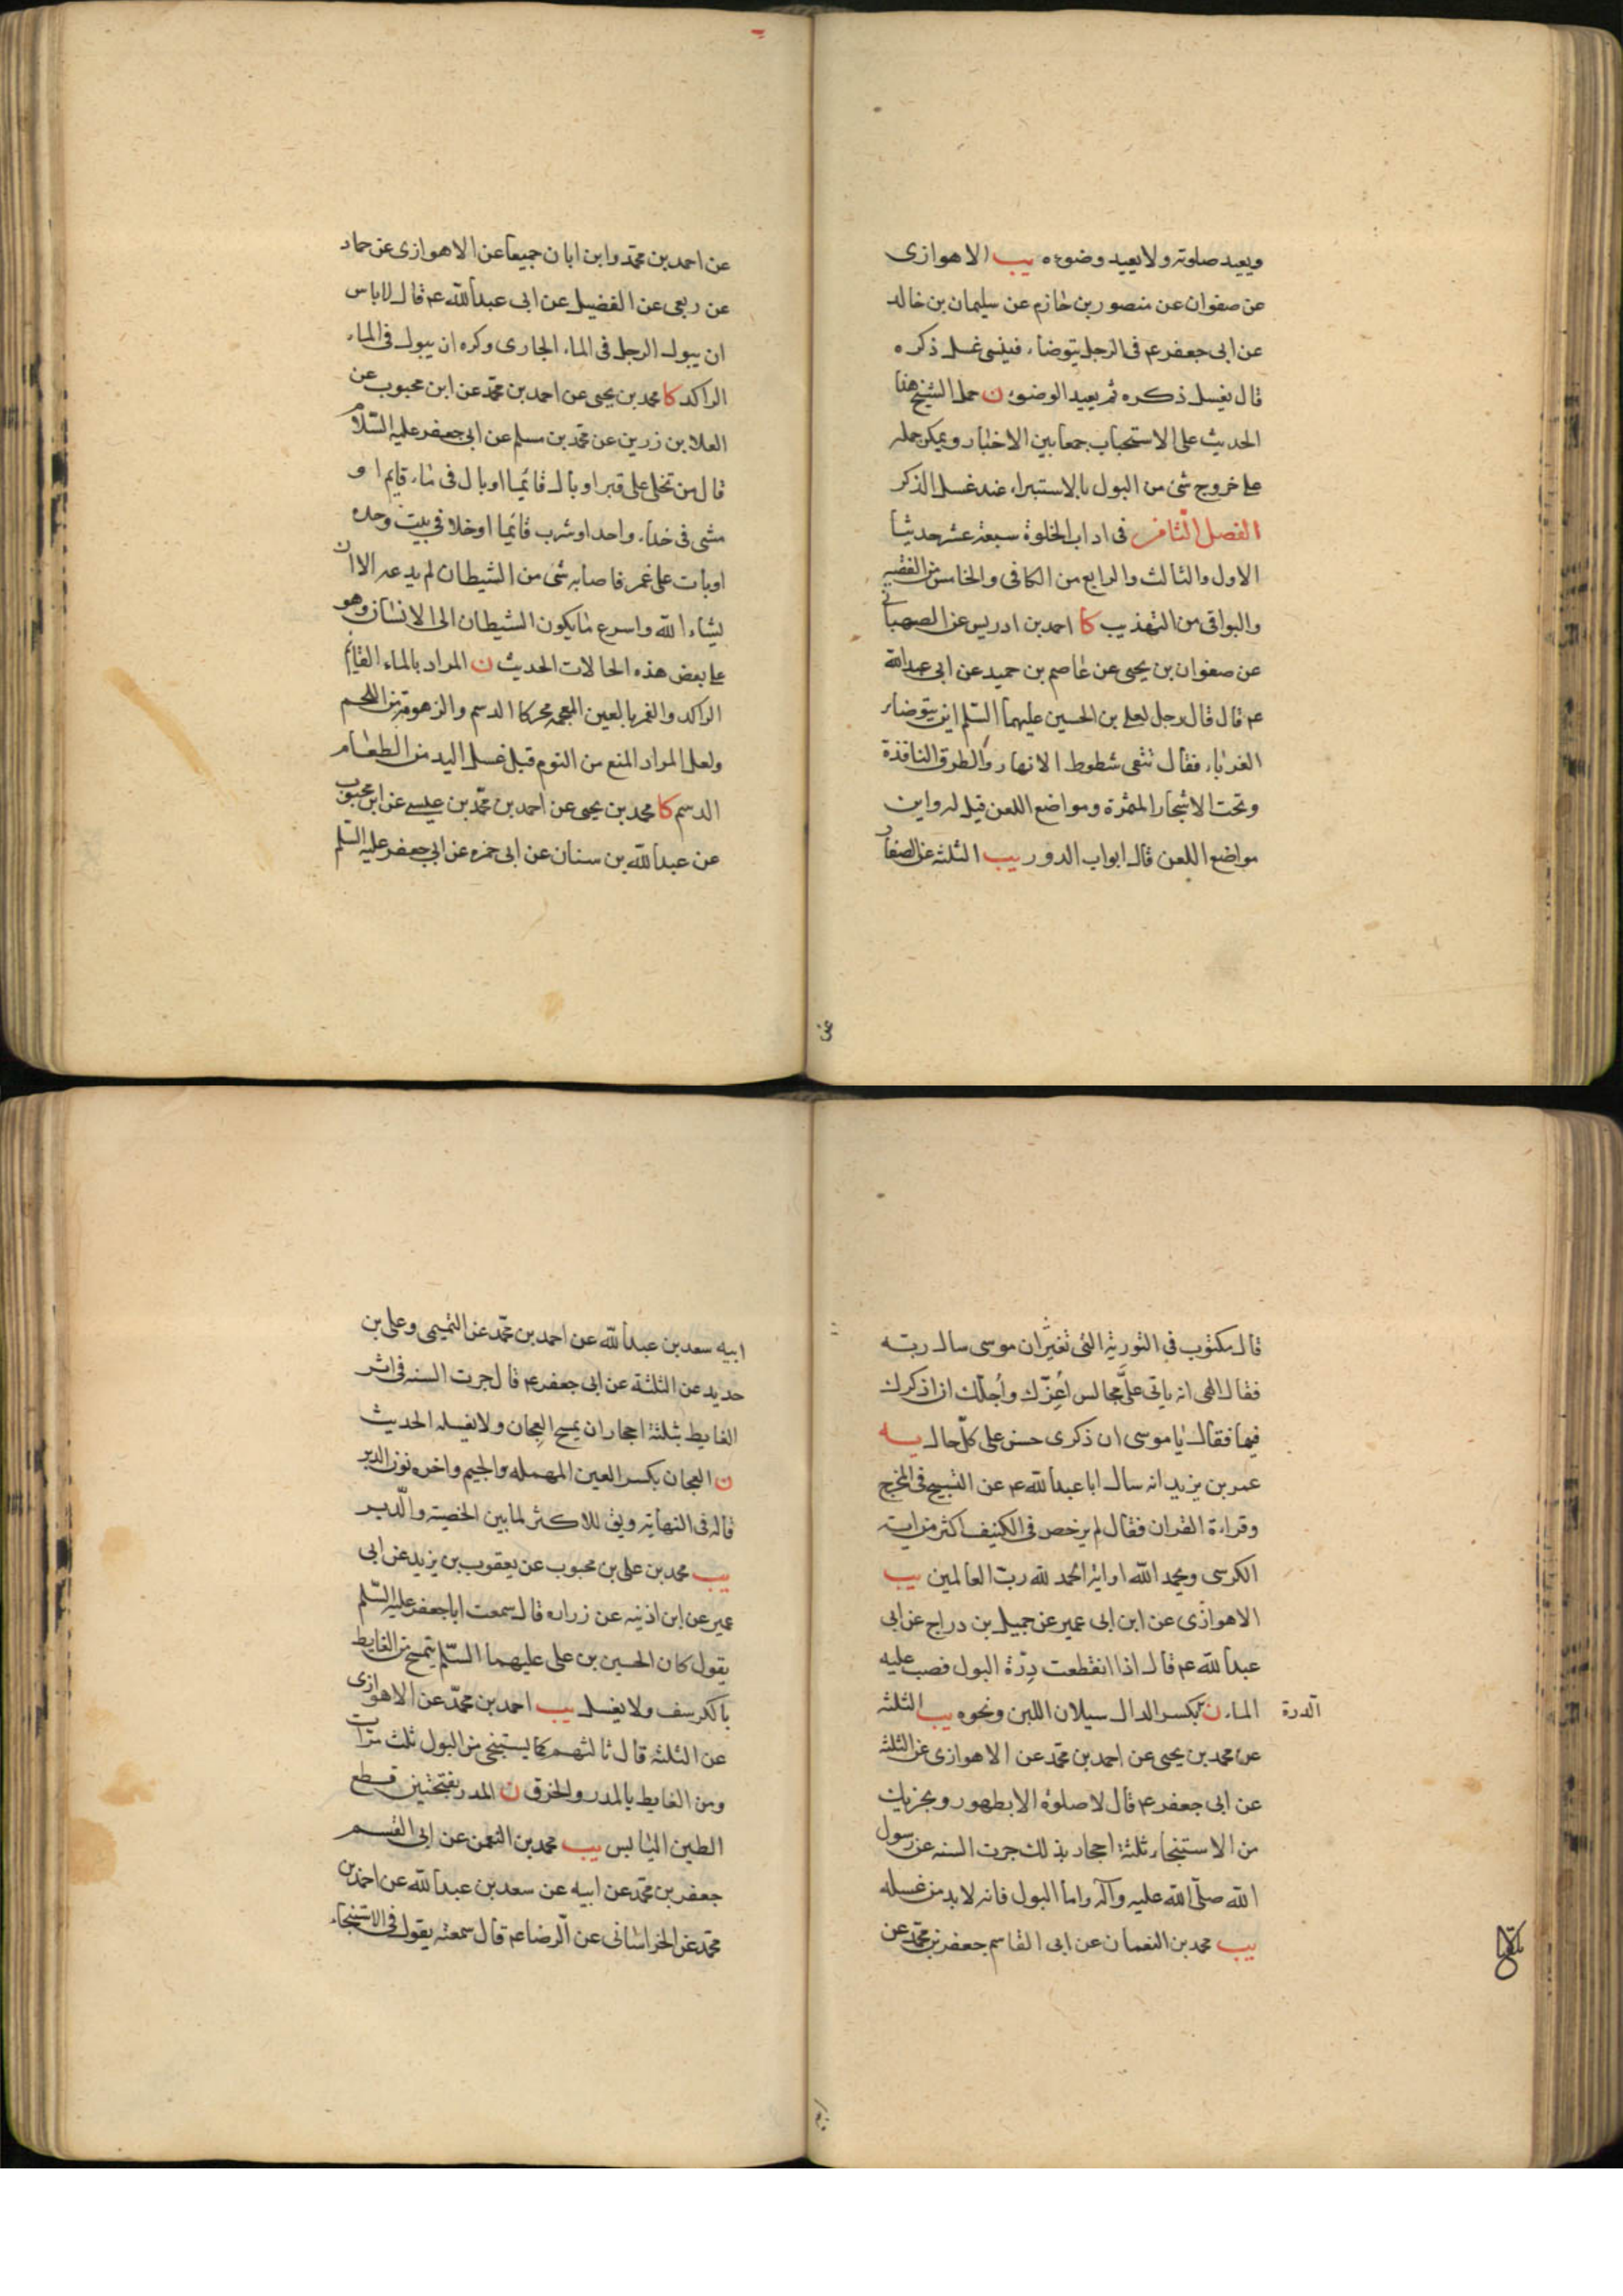 ويعيد صلوته ولا يعيد وضوءه يب الاهوازى
عن صفوان عن منصور بن حازم عن سليمان بن خالد
عن ابى جعفر ع م فى الرجل يتوضاء فينسى غسل ذكره
قال يغسل ذكره ثم يعيد الوضوء ن حمل الشيخ هذا
الحديث على الاستحباب جمعا بين الاخبار ويمكن حمله
على خروج شئ من البول بالاستبراء عند غسل الذكر
الفصل الثامن فى اداب الخلوة سبعة عشر حديثا
الاول والثالث والرابع من الكافى والخامس من الفقيه
والبواقى من التهذيب كا احمد بن ادريس عن الصهبانى
عن صفوان بن يحيى عن عاصم بن حميد عن ابى عبد الله
ع م قال قال رجل لعلى بن الحسين عليهما السلم اين يتوضاء
الغرباء فقال تتقى شطوط الانهار والطرق النافذة
وتحت الاشجار المثمرة ومواضع اللعن قيل له واين
مواضع اللعن قال ابواب الدور يب الثلثة عن الصفار
عن
عن احمد بن محمد وابن ابان جميعا عن الاهوازى عن حماد
عن ربعى عن الفضيل عن ابى عبد الله ع م قال لا باس
ان يبول الرجل فى الماء الجارى وكره ان يبول فى الماء
الراكد كا محمد بن يحيى عن احمد بن محمد عن ابن محبوب عن
العلا بن زرين عن محمد بن مسلم عن ابى جعفر عليه السلام
قال من تخلى على قبر او بال قائما او بال فى ماء قايم او
مشى فى حذاء واحد او شرب قائما او خلا فى بيت وحده
او بات على غمر فاصابه شئ من الشيطان لم يدعه الا ان
يشاء الله واسرع ما يكون الشيطان الى الانسان وهو
على بعض هذه الحالات الحديث ن المراد بالماء القايم
الراكد والغمر بالعين المعجمة محركا الدسم والزهومة من اللحم
ولعل المراد المنع من النوم قبل غسل اليد من الطعام
الدسم كا محمد بن يحيى عن احمد بن محمد بن عيسى عن ابن محبوب
عن عبد الله بن سنان عن ابى حمزه عن ابى جعفر عليه السلم
قال مكتوب فى التورية التى لم تغير ان موسى سال ربه
فقال الهى انه ياتى علىّ مجالس اُعزّك واُجلّك ان اذكرك
فيها فقال يا موسى ان ذكرى حسن على كل حال يه
عمر بن يزيد انه سال ابا عبد الله ع م عن التسبيح فى المخرج
وقراءة القران فقال لم يرخص فى الكنيف اكثر من اية
الكرسى ويحمد الله او اية الحمد لله رب العالمين يب
الاهوازى عن ابن ابى عمير عن جميل بن دراج عن ابى
عبد الله ع م قال اذا انقطعت دِرّة البول فصب عليه
الماء ن بكسر الدال سيلان اللبن ونحوه يب الثلثة
الدرة
عن محمد بن يحيى عن احمد بن محمد عن الاهوازى عن الثلثة
عن ابى جعفر ع م قال لا صلوة الا بطهور ويجزيك
من الاستنجاء ثلثة احجار بذلك جرت السنة عن رسول
الله صلّى الله عليه وآله واما البول فانه لا بد من غسله
يب محمد بن النعمان عن ابى القاسم جعفر بن محمد عن
ابيه سعد بن عبد الله عن احمد بن محمد عن التميمى وعلى بن
حديد عن الثلثة عن ابى جعفر ع م قال جرت السنه فى اثر
الغايط بثلثة احجار ان يمسح العجان ولا يغسله الحديث
ن العجان بكسر العين المهمله والجيم واخره نون الدبر
قاله فى النهاية ويق للاكثر لما بين الخصية والدبر
يب محمد بن على بن محبوب عن يعقوب بن يزيد عن ابى
عمير عن ابن اذينه عن زراره قال سمعت ابا جعفر عليه السلم
يقول كان الحسين بن على عليهما السلم يتمسح من الغايط
بالكرسف ولا يغسل يب احمد بن محمد عن الاهوازى
عن الثلثة قال ثالثهم كا يستنجى من البول ثلث مرات
ومن الغايط بالمدر والخرق ن المدر بفتحتين قطع
الطين اليابس يب محمد بن النعمن عن ابى القسم
جعفر بن محمد عن ابيه عن سعد بن عبد الله عن احمد بن
محمد عن الخراسانى عن الرضا ع م قال سمعته يقول فى الاستنجاء